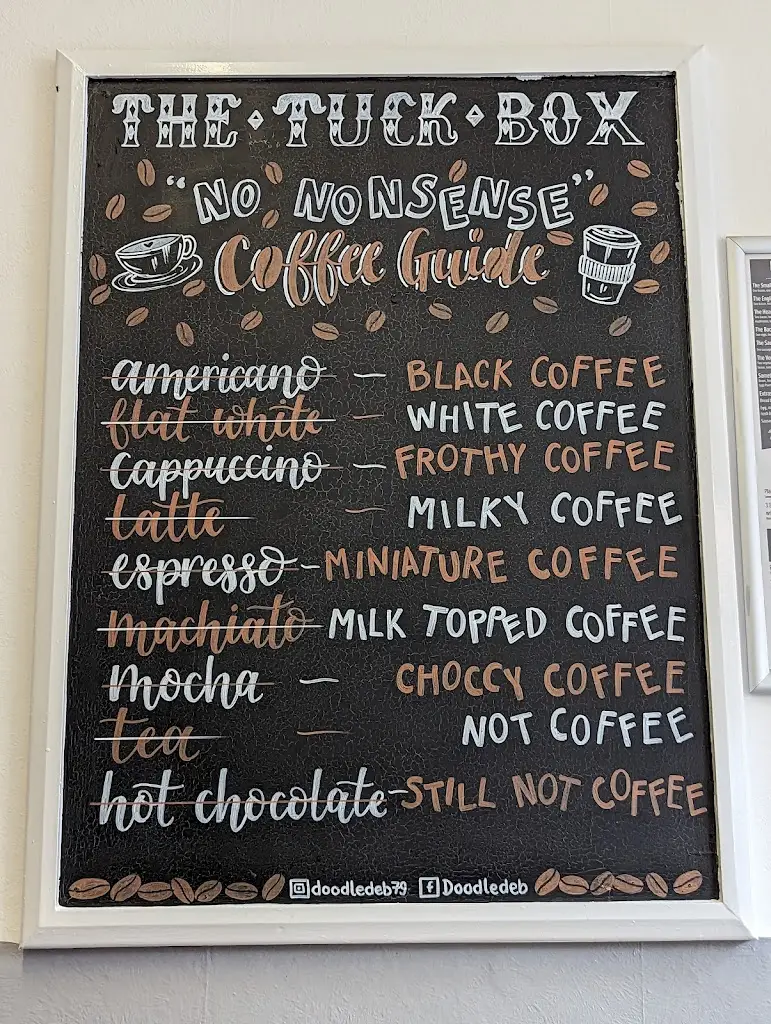 THE · TUCK · BOX
"NO NONSENSE"
Coffee Guide
americano — BLACK COFFEE
flat white — WHITE COFFEE
cappuccino — FROTHY COFFEE
latte — MILKY COFFEE
espresso - MINIATURE COFFEE
machiato MILK TOPPED COFFEE
mocha — CHOCCY COFFEE
tea — NOT COFFEE
hot chocolate - STILL NOT COFFEE
doodledeb79 Doodledeb